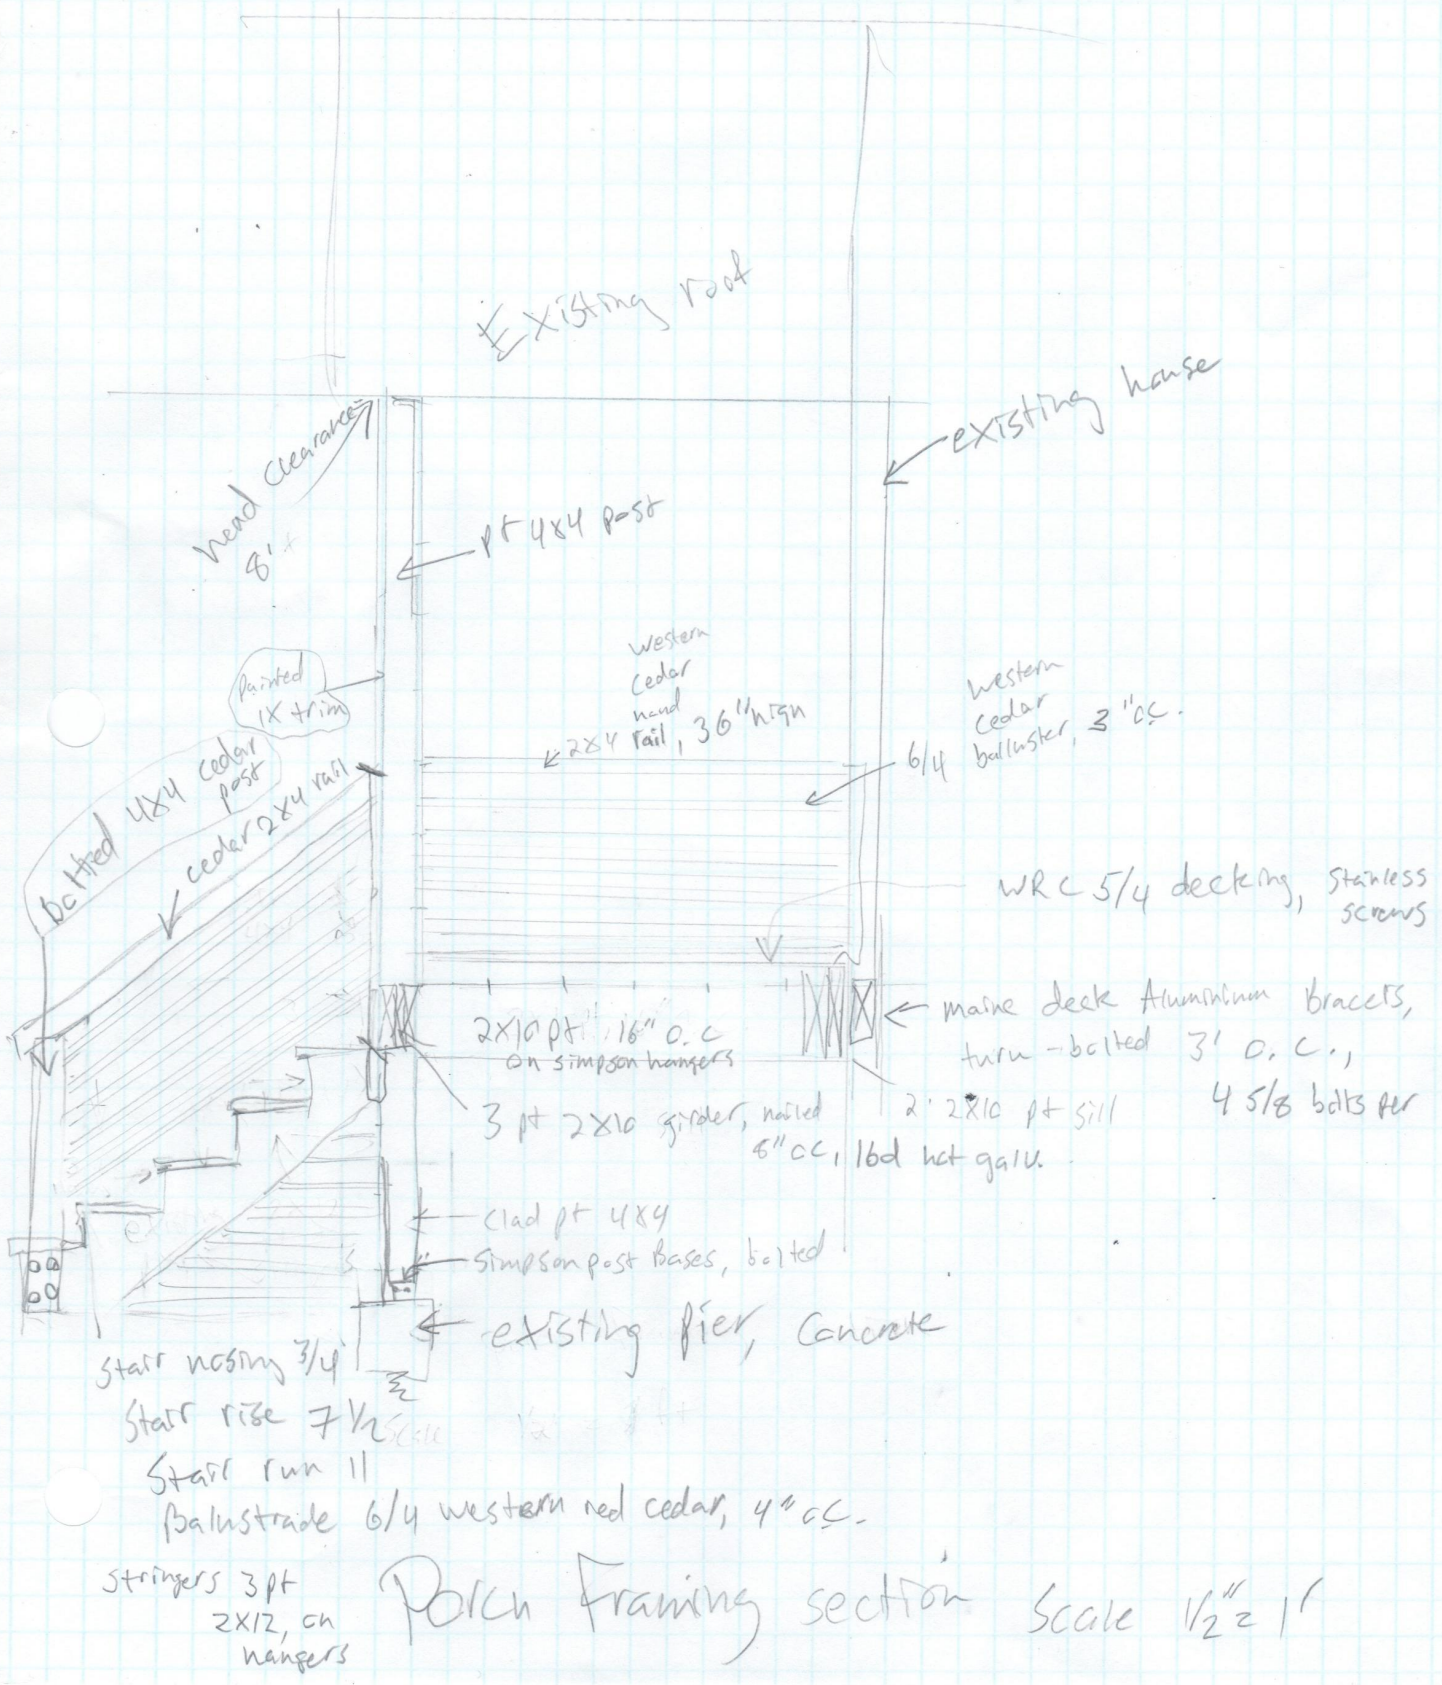 Existing roof
existing house
head clearance
8'
pt 4x4 post
painted
1x trim
western
cedar
hand
2x4 rail, 36" high
western
cedar
6/4 balluster, 3" oc.
boltted 4x4 cedar
post
cedar 2x4 rail
WRC 5/4 decking, stainless
screws
maine deck Aluminium Bracets,
turn-bolted 3' o.c.,
4 5/8 bolts per
2x10 pt 16" o.c
on simpson hangers
3 pt 2x10 girder, nailed
8" oc, 16d hot galv.
2 2x10 pt sill
clad pt 4x4
simpson post Bases, bolted
existing pier, concrete
stair nosing 3/4
stair rise 7 1/2
Stair run 11
Balustrade 6/4 western red cedar, 4" oc.
stringers 3 pt
2x12, on
hangers
Porch Framing section Scale 1/2" = 1'